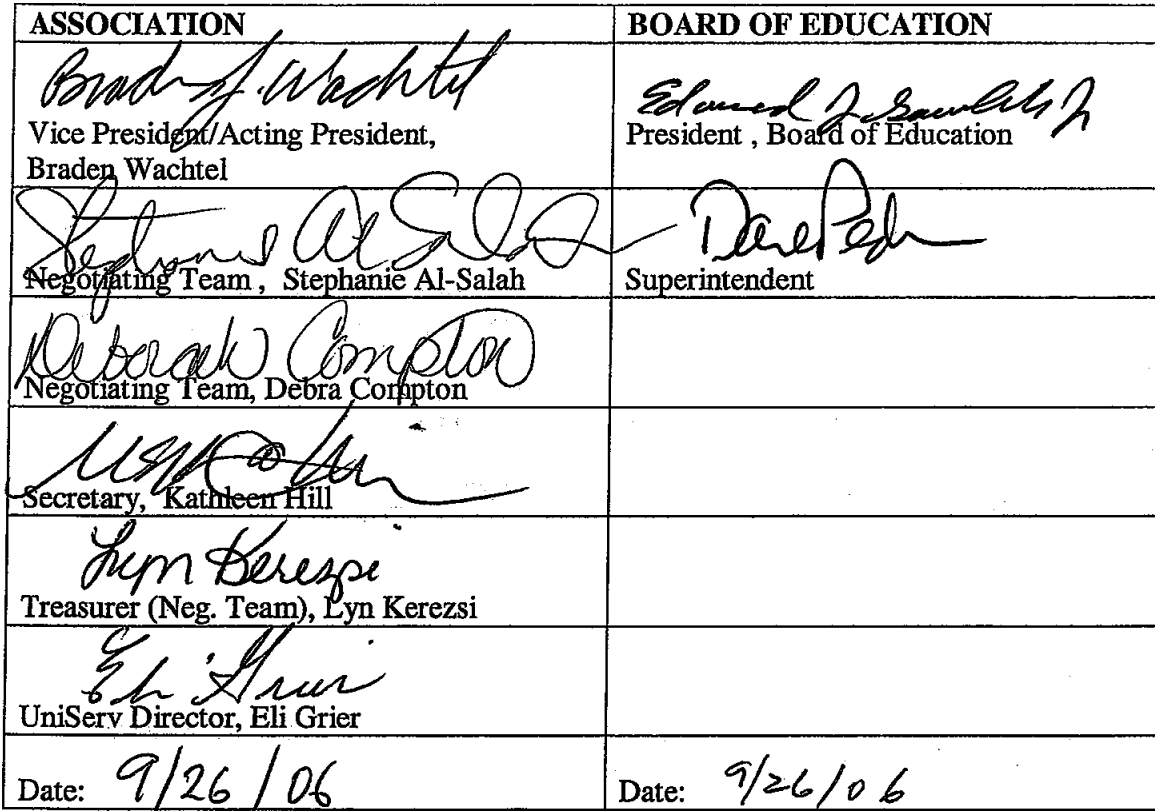 ASSOCIATION
BOARD OF EDUCATION
Braden J. Wachtel
Vice President/Acting President,
Braden Wachtel
Edward J.
President , Board of Education
Stephanie Al-Salah
Negotiating Team , Stephanie Al-Salah
Dave
Superintendent
Deborah Compton
Negotiating Team, Debra Compton
Secretary, Kathleen Hill
Lyn Kerezsi
Treasurer (Neg. Team), Lyn Kerezsi
Eli Grier
UniServ Director, Eli Grier
Date: 9/26/06
Date: 9/26/06